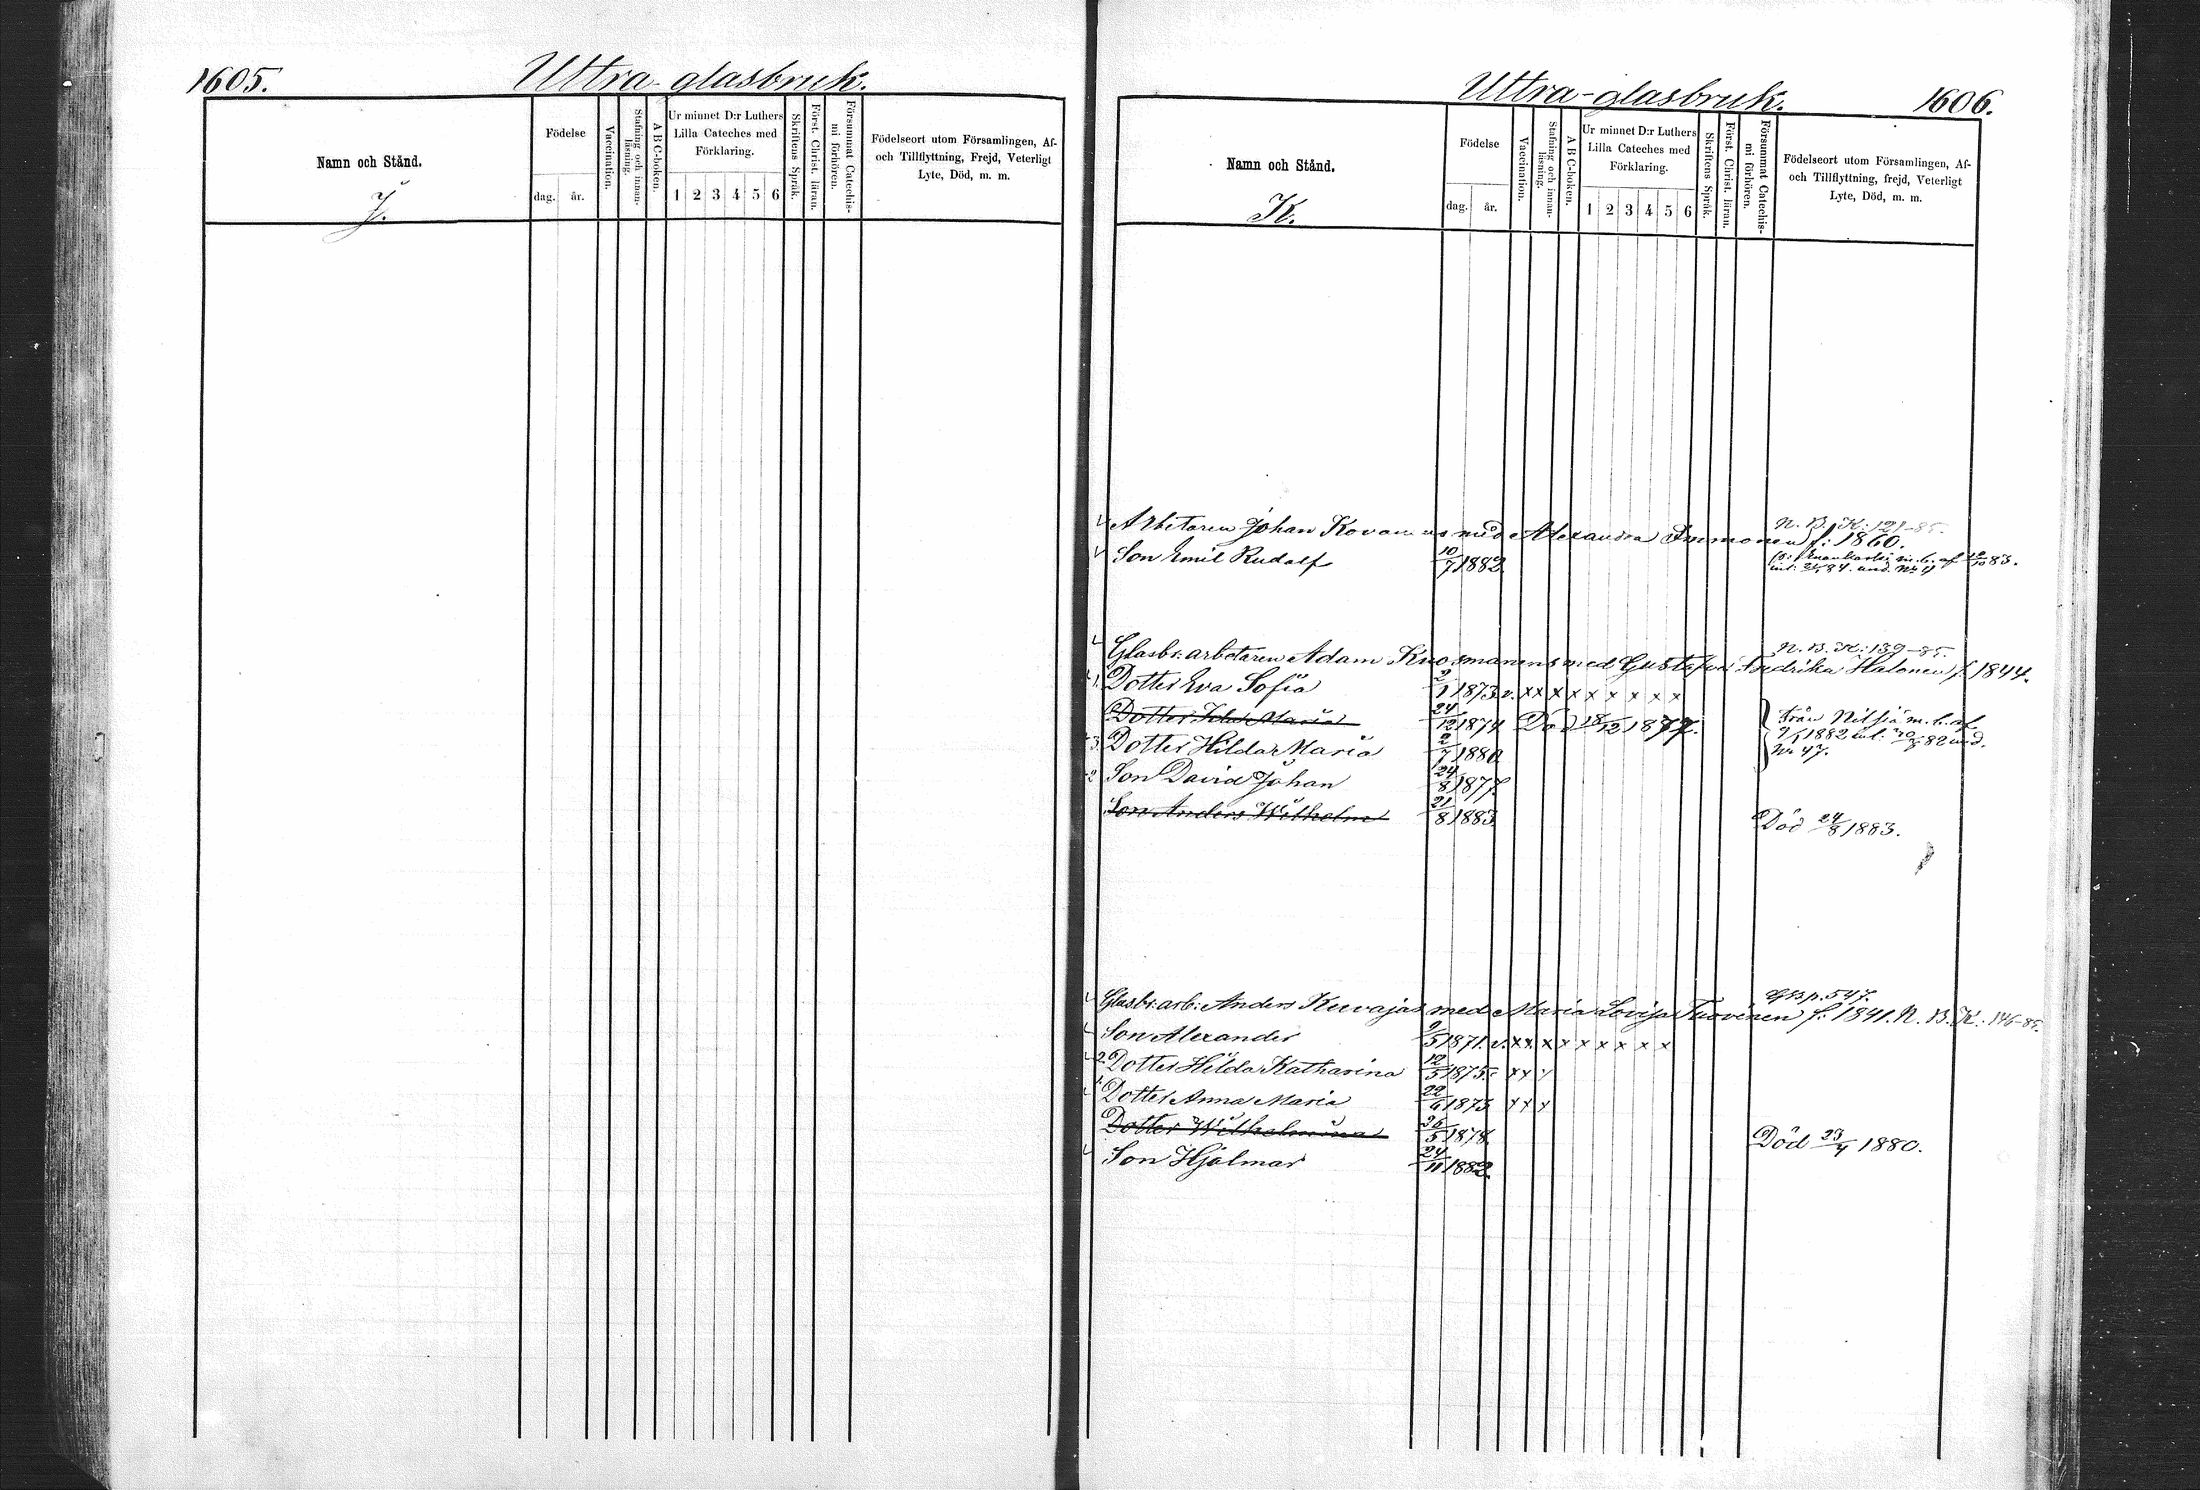 1605.
Uttra-glasbruk.
Namn och Stånd.
J.
Födelse
dag. år.
Vaccination.
Stafning och innanläsning.
A B C-boken.
Ur minnet D:r Luthers
Lilla Cateches med
Förklaring.
1 2 3 4 5 6
Skriftens Språk.
Först. Christ. läran.
Försummat Catechismi förhören.
Födelseort utom Församlingen, Af-
och Tillflyttning, Frejd, Veterligt
Lyte, Död, m. m.
Uttra-glasbruk.
1606.
Namn och Stånd.
K.
Födelse
dag. år.
Vaccination.
Stafning och innanläsning.
A B C-boken.
Ur minnet D:r Luthers
Lilla Cateches med
Förklaring.
1 2 3 4 5 6
Skriftens Språk.
Först. Christ. läran.
Försummat Catechismi förhören.
Födelseort utom Församlingen, Af-
och Tillflyttning, frejd, Veterligt
Lyte, Död, m. m.
N. B. K: 121-85.
Arbetaren Johan Kovanens med Alexandra Immonen f: 1860.
Son Emil Rudolf 10/7 1882
N. B. K: 139-85.
Glasbr: arbetaren Adam Knosmanens med Gustafva Fredrika Halonen f. 1844.
1. Dotter Eva Sofia 2/1 1873 v. x x x x x x x x x
Dotter Maria 24/12 1874 Död 18/12 1877.
Från Nilsiä m. b. af
3. Dotter Hilda Maria 2/7 1880
1882 int: 82 und.
No 47.
2 Son David Johan 24/8 1877
Son Anders Wilhelm 21/8 1883 Död 24/8 1883.
p. 547.
Glasbr: arb: Anders Kuvajas med Maria Lovisa Tuovinen f: 1841. N. B. K: 146-85.
Son Alexander 9/5 1871. v. x x x x x x x x x
2. Dotter Hilda Katharina 12/5 1875 x x x
1. Dotter Anna Maria 22/6 1873 x x x
Dotter Wilhelmina 26/5 1878 Död 23/4 1880.
Son Hjalmar 24/11 1882